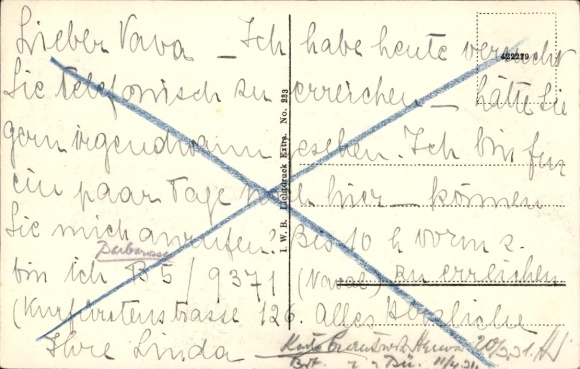 Lieber Vava — Ich habe heute versucht
Sie telefonisch zu erreichen — hätte Sie
gern irgendwann gesehen. Ich bin für
ein paar Tage hier — können
Sie mich anrufen? Bis 10 h vorm.
bin ich B5/9371 zu erreichen
(Kurfürstenstrasse 126. Alles Herzliche
Ihre Linda
422279
I. W. B. Lichtdruck Extra. No. 233